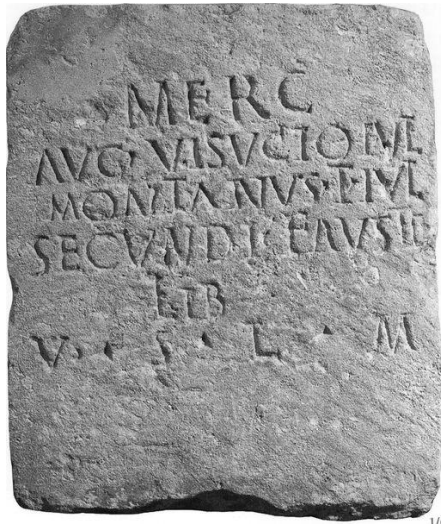 MERC
AVG · VISVCIO IVL
MONTANVS · L · IVL
SECVNDI · FAVSTI
LIB
V · S · L · M